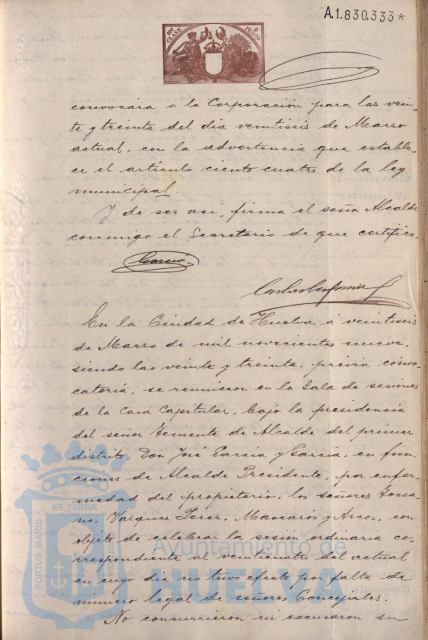 A.1.830.333*
convocára á la Corporación para las vein-
te y treinta del dia veintiseis de Marzo
actual, con la advertencia que estable-
ce el artículo ciento cuatro de la ley
municipal.
Y de ser asi, firma el señor Alcalde
conmigo el Secretario de que certifico.
García
En la Ciudad de Huelva á veintiseis
de Marzo de mil novecientos nueve,
siendo las veinte y treinta, prévia convo-
catoria, se reunieron en la Sala de sesiones
de la Casa Capitular, bajo la presidencia
del señor Teniente de Alcalde del primer
distrito, Don José García y García, en fun-
ciones de Alcalde Presidente, por enfer-
medad del propietario, los señores
Vazquez Mascarós y con
objeto de celebrar la sesion ordinaria co-
rrespondiente al veinticuatro del actual
en cuyo dia no tuvo efecto por falta de
número legal de señores Concejales.
No concurrieron ni escusaron su
PORTUS MARIS ET TERRÆ
Ayuntamiento de
HUELVA